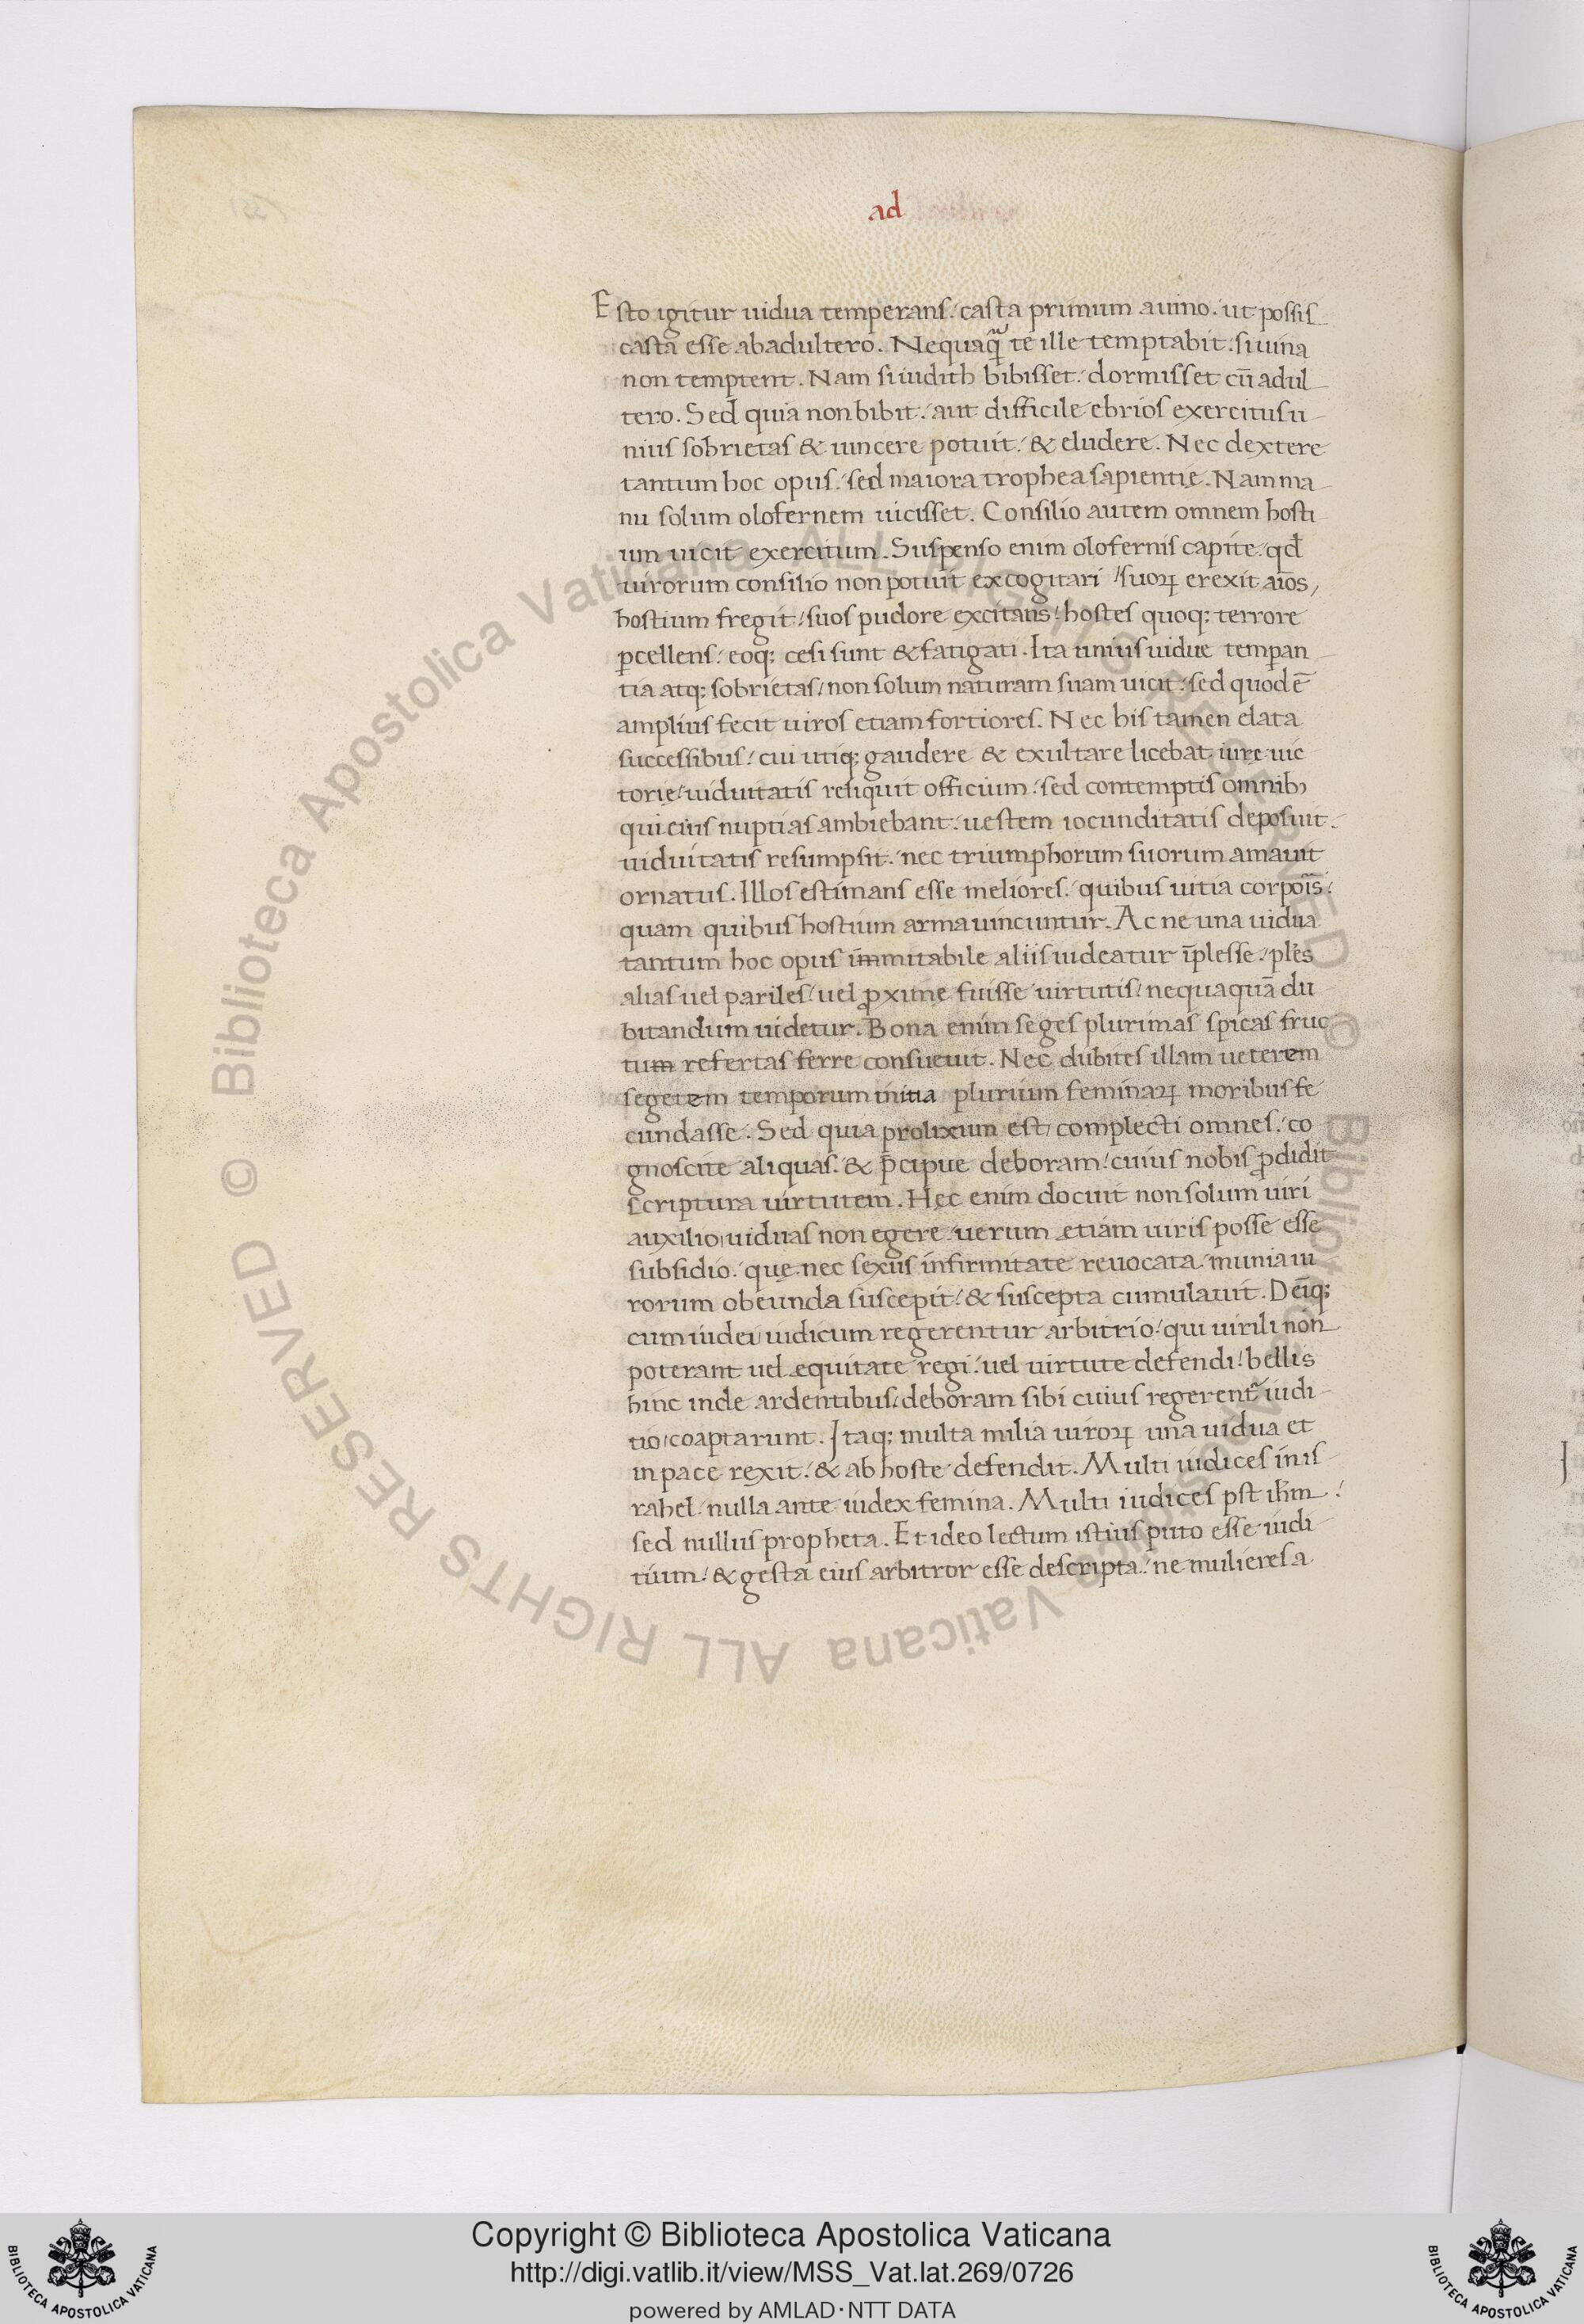 ad
Esto igitur uidua temperans. casta primum auino. ut possis
casta esse abadultero. Nequaqͣ̄ te ille temptabit. siuina
non temptent. Nam si iudith bibisset. dormisset cū adul
tero. Sed quia non bibit. aut difficile ebrios exercitus u
nius sobrietas & uincere potuit. & eludere. Nec dextere
tantum hoc opus. sed maiora trophea sapientię. Nam ma
nu solum olofernem uicisset. Consilio autem omnem hosti
um uicit exercitum. Suspenso enim olofernis capite. qđ
uirorum consilio non potuit excogitari / suoꝝ erexit aīos,
hostium fregit / suos pudore excitans / hostes quoq; terrore
ꝑcellens. eoq; cesi sunt & fatigati. Ita unius uidue temꝑan
tia atq; sobrietas / non solum naturam suam uicit. sed quod ē
amplius fecit uiros etiam fortiores. Nec his tamen elata
successibus / cui utiq; gaudere & exultare licebat iure uic
torie / uiduitatis reliquit officium. sed contemptis omnib;
qui eius nuptias ambiebant. uestem iocunditatis deposuit.
uiduitatis resumpsit. nec triumphorum suorum amauit
ornatus. Illos estimans esse meliores. quibus uitia corpoīs.
quam quibus hostium arma uincuntur. Ac ne una uidua
tantum hoc opus īmmitabile aliis uideatur īplesse. plēs
alias uel pariles / uel ꝓxime fuisse uirtutis / nequaquā du
bitandum uidetur. Bona enim seges plurimas spicas fruc
tum refertas ferre consueuit. Nec dubites illam ueterem
segetem temporum initia plurium feminaꝝ moribus fe
cundasse. Sed quia prolixum est, complecti omnes. co
gnoscite aliquas. & p̄cipue deboram. cuius nobis ꝓdidit
scriptura uirtutem. Hęc enim docuit non solum uiri
auxilio uiduas non egere. uerum etiam uiris posse esse
subsidio. quę nec sexus infirmitate reuocata. munia ui
rorum obeunda suscepit. & suscepta cumulauit. Deīq;
cum iudei iudicum regerentur arbitrio. qui uirili non
poterant uel equitate regi. uel uirtute defendi. bellis
hinc inde ardentibus / deboram sibi cuius regerent᷑ iudi
tio coaptarunt. Itaq; multa milia uiroꝝ una uidua et
in pace rexit. & ab hoste defendit. Multi iudices in is
rahel. nulla ante iudex femina. Multi iudices pst ih̄m.
sed nullus propheta. Et ideo lectum istius puto esse iudi
tium. & gesta eius arbitror esse descripta. ne mulieres a
© Biblioteca Apostolica Vaticana ALL RIGHTS RESERVED © Biblioteca Apostolica Vaticana ALL RIGHTS RESERVED
Copyright © Biblioteca Apostolica Vaticana
http://digi.vatlib.it/view/MSS_Vat.lat.269/0726
powered by AMLAD·NTT DATA
BIBLIOTECA APOSTOLICA VATICANA
BIBLIOTECA APOSTOLICA VATICANA